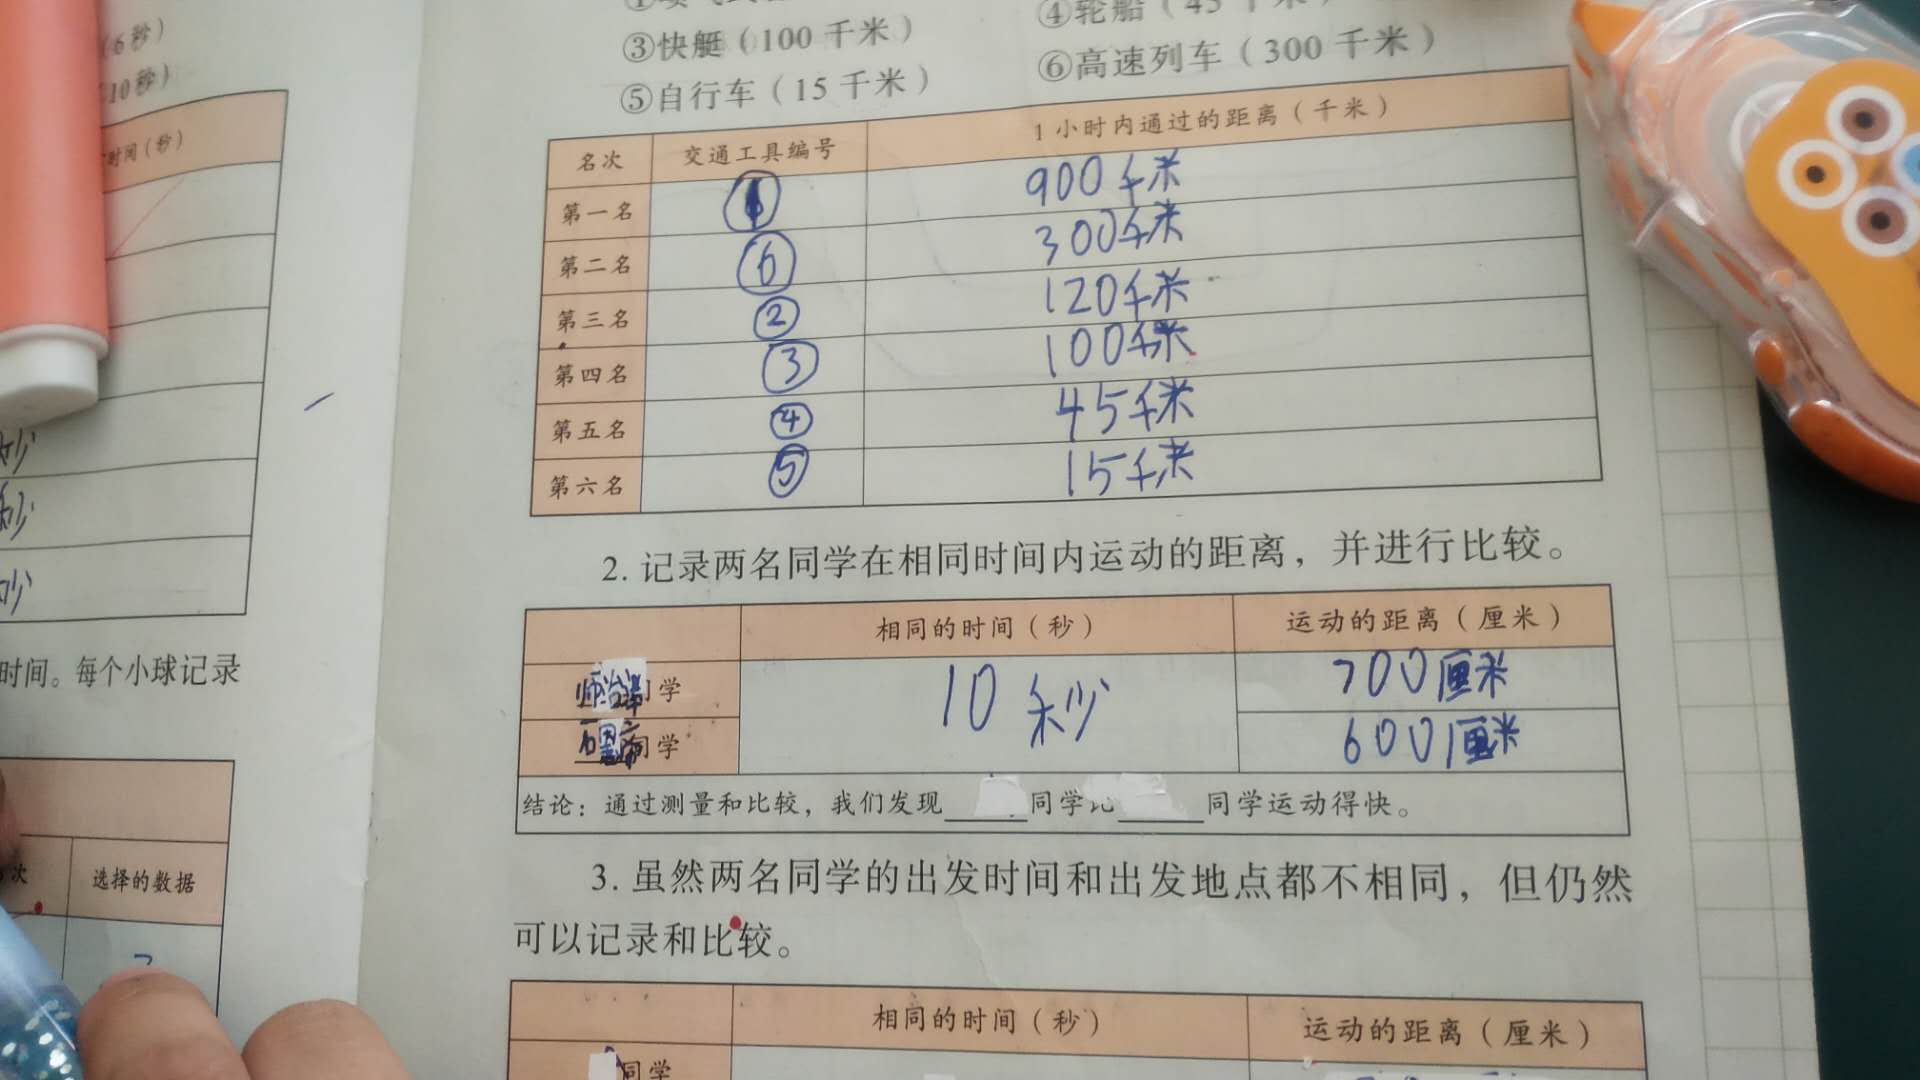 （6秒）
10秒）
时间（秒）
秒
秒
秒
时间。每个小球记录
次 选择的数据
③快艇（100千米）
④轮船（45千米）
⑤自行车（15千米）
⑥高速列车（300千米）
名次 交通工具编号 1小时内通过的距离（千米）
第一名 ① 900千米
第二名 ⑥ 300千米
第三名 ② 120千米
第四名 ③ 100千米
第五名 ④ 45千米
第六名 ⑤ 15千米
2. 记录两名同学在相同时间内运动的距离，并进行比较。
相同的时间（秒） 运动的距离（厘米）
学 10秒 700厘米
同学 600厘米
结论：通过测量和比较，我们发现 同学比 同学运动得快。
3. 虽然两名同学的出发时间和出发地点都不相同，但仍然
可以记录和比较。
相同的时间（秒） 运动的距离（厘米）
同学